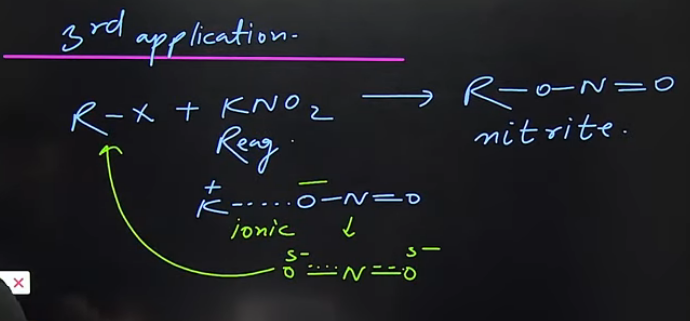 3rd application.
R-X + KNO2 ⟶ R-O-N=O
Reag. nitrite.
K+ ...... O̅-N=O
ionic ↓
δ- δ-
O=N=O
×